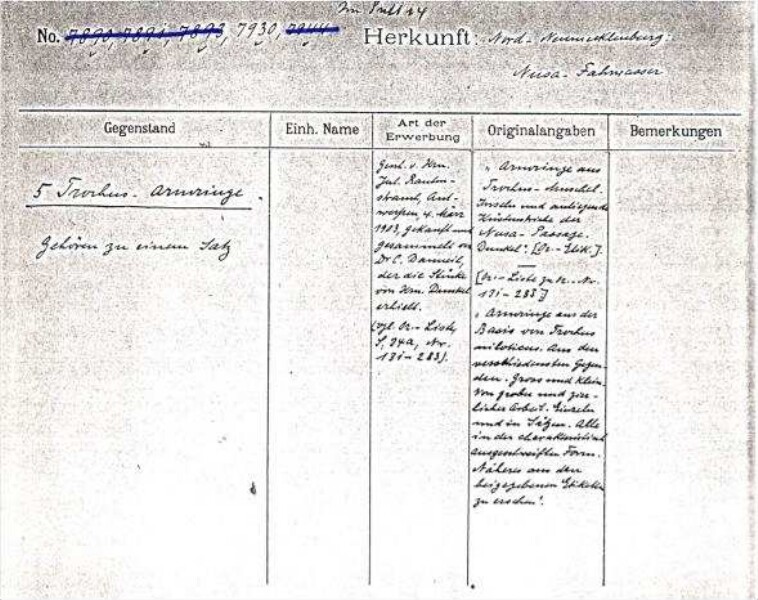 Im Pult 24
No. 7890, 7891, 7893, 7930, 7944 Herkunft: Nord-Neumecklenburg:
Nusa-Fahrwasser
Gegenstand Einh. Name Art der Erwerbung Originalangaben Bemerkungen
5 Trochus-Armringe.
Gehören zu einem Satz
Gesch. v. Hrn.
Jul. Rauten-
strauch, Ant-
werpen, 4. März
1903, gekauft und
gesammelt von
Dr C. Danneil,
der die Stücke
von Hrn. Dunkel
erhielt.
(vgl. Or.-Liste,
S. 34a, No.
131-283).
„Armringe aus
Trochus-Muschel.
Inseln und anliegende
Küstenstriche der
Nusa-Passage.
Dunkel". [Or.-Etik.].
[Or.-Liste zu Or. No.
131-283]
„Armringe aus der
Basis von Trochus
niloticus. Aus den
verschiedensten Gegen-
den. Gross und klein.
Von grober und zier-
licher Arbeit. Einzeln
und in Sätzen. Alle
in der charakteristisch
ausgeschweiften Form.
Näheres aus den
beigegebenen Etiketten
zu ersehen".